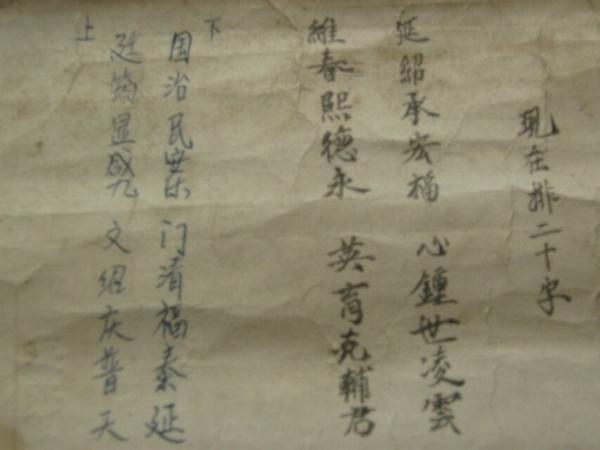 現在排二十字
延紹承宏福 心鍾世凌雲
維春熙德永 英育克輔君
下
国治民樂 门清福泰延
显 文绍庆普天
上